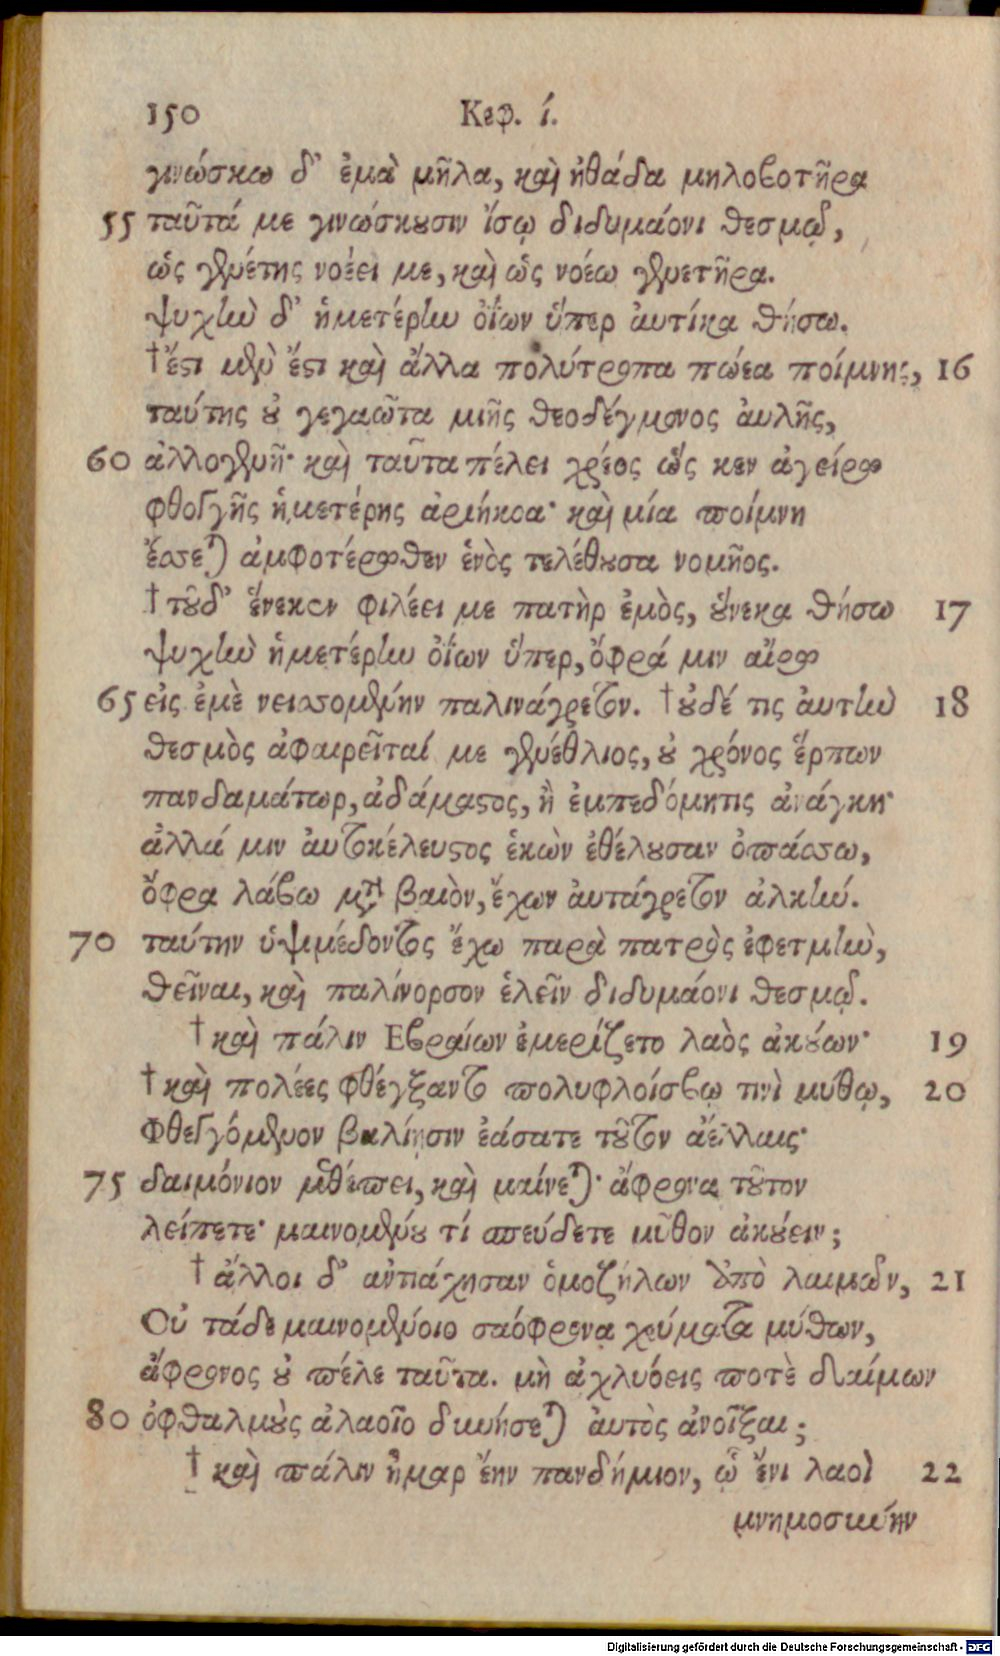 150 Κεφ. ί.
γινώσκω δ' ἐμὰ μῆλα, καὶ ἠθάδα μηλοβοτῆρα
55 ταῦτά με γινώσκουσιν ἴσῳ διδυμάονι θεσμῷ,
ὡς γενέτης νοέει με, καὶ ὡς νοέω γενετῆρα.
ψυχὴν δ' ἡμετέρην ὀΐων ὕπερ ἀυτίκα θήσω.
†ἔστι μὲν ἔστι καὶ ἄλλα πολύτροπα πώεα ποίμνης, 16
ταύτης οὐ γεγαῶτα μιῆς θεοδέγμονος ἀυλῆς,
60 ἀλλογενῆ· καὶ ταῦτα πέλει χρέος ὥς κεν ἀγείρω
φθογγῆς ἡμετέρης ἀρήκοα· καὶ μία ποίμνη
ἔσσεται ἀμφοτέρωθεν ἑνὸς τελέθουσα νομῆος.
†τοῦδ' ἕνεκεν φιλέει με πατὴρ ἐμὸς, οὕνεκα θήσω 17
ψυχὴν ἡμετέρην ὀΐων ὕπερ, ὄφρά μιν αἴρω
65 εἰς ἐμὲ νεισσομένην παλινάγρετον. †οὐδέ τις ἀυτὴν 18
θεσμὸς ἀφαιρεῖταί με γενέθλιος, οὐ χρόνος ἕρπων
πανδαμάτωρ, ἀδάμαστος, ἢ ἐμπεδόμητις ἀνάγκη·
ἀλλά μιν ἀυτοκέλευστος ἑκὼν ἐθέλουσαν ὀπάσσω,
ὄφρα λάβω μετὰ βαιὸν, ἔχων ἀυτάγρετον ἀλκήν.
70 ταύτην ὑψιμέδοντος ἔχω παρὰ πατρὸς ἐφετμὴν,
θεῖναι, καὶ παλίνορσον ἑλεῖν διδυμάονι θεσμῷ.
†καὶ πάλιν Εβραίων ἐμερίζετο λαὸς ἀκούων· 19
†καὶ πολέες φθέγξαντο πολυφλοίσβῳ τινὶ μύθῳ, 20
Φθεγγόμενον βαλίῃσιν ἐάσατε τοῦτον ἀέλλαις·
75 δαιμόνιον μεθέπει, καὶ μαίνεται· ἄφρονα τοῦτον
λείπετε· μαινομένου τί σπεύδετε μῦθον ἀκούειν;
†ἄλλοι δ' αντιάχησαν ὁμοζήλων ὑπὸ λαιμῶν, 21
Οὐ τάδε μαινομένοιο σαόφρονα χεύματα μύθων,
ἄφρονος οὐ πέλε ταῦτα. μὴ ἀχλυόεις ποτὲ δαίμων
80 ὀφθαλμοὺς ἀλαοῖο δυνήσεται ἀυτὸς ἀνοῖξαι;
†καὶ πάλιν ἦμαρ ἔην πανδήμιον, ᾧ ἔνι λαοὶ 22
μνημοσύνην
Digitalisierung gefördert durch die Deutsche Forschungsgemeinschaft - DFG